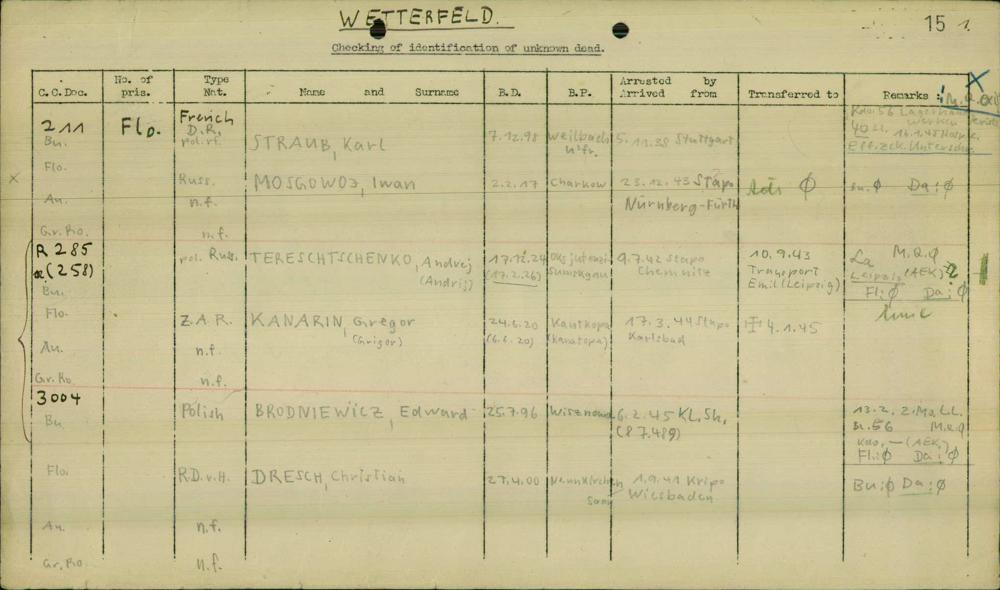 WETTERFELD.
15
Checking of identification of unknown dead.
C.C.Doc. No. of pris. Type Nat. Name and Surname B.D. B.P. Arrested by Arrived from Transferred to Remarks :
211 Flo. French
Bu. D.R. STRAUB, Karl 7.12.98 Weilbach 5.11.38 Stuttgart
Flo.
Russ. MOSGOWOJ, Iwan 2.2.17 Charkow 23.12.43 Stapo Da: Ø
Au. n.f. Nürnberg-Fürth
Gr.Ro. n.f.
R 285 pol. Russ. TERESCHTSCHENKO, Andrej 17.12.24 9.7.42 Stapo 10.9.43 M.R.Ø
(258) (Andrij) (17.2.26) Chemnitz Transport Leipzig (AEK)
Bu. Emil (Leipzig) Fl: Ø Da: Ø
Flo. Z.A.R. KANARIN, Gregor 24.6.20 17.3.44 Stapo 4.1.45
(Grigor) (6.6.20) (Kanatopa) Karlsbad
Au. n.f.
Gr.Ro. n.f.
3004
Bu. Polish BRODNIEWICZ, Edward 25.7.96 6.2.45 KL.Sh. 13.2.
(87.489) M.R.Ø
(AEK)
Fl: Ø Da: Ø
Flo. R.D.v.H. DRESCH, Christian 27.4.00 Neunkirchen 1.9.41 Kripo Bu: Ø Da: Ø
Saar Wiesbaden
Au. n.f.
Gr.Ro. n.f.